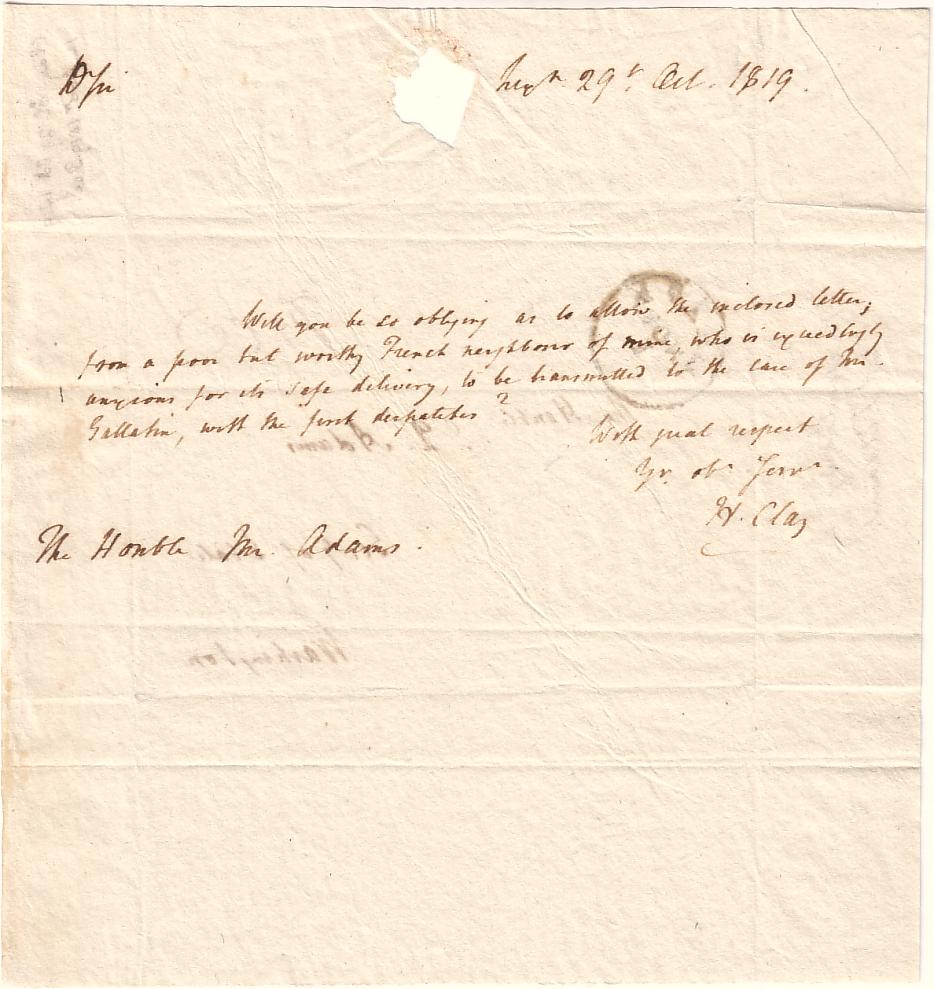 D Sir
Lexn. 29t. Oct. 1819.
Will you be so obliging as to allow the inclosed letter,
from a poor but worthy French neighbour of mine, who is exceedingly
anxious for its safe delivery, to be transmitted to the care of Mr.
Gallatin, with the first despatches?
With great respect
Yr. obt. Servt.
H. Clay
The Honble Mr. Adams.
Adams
Washington